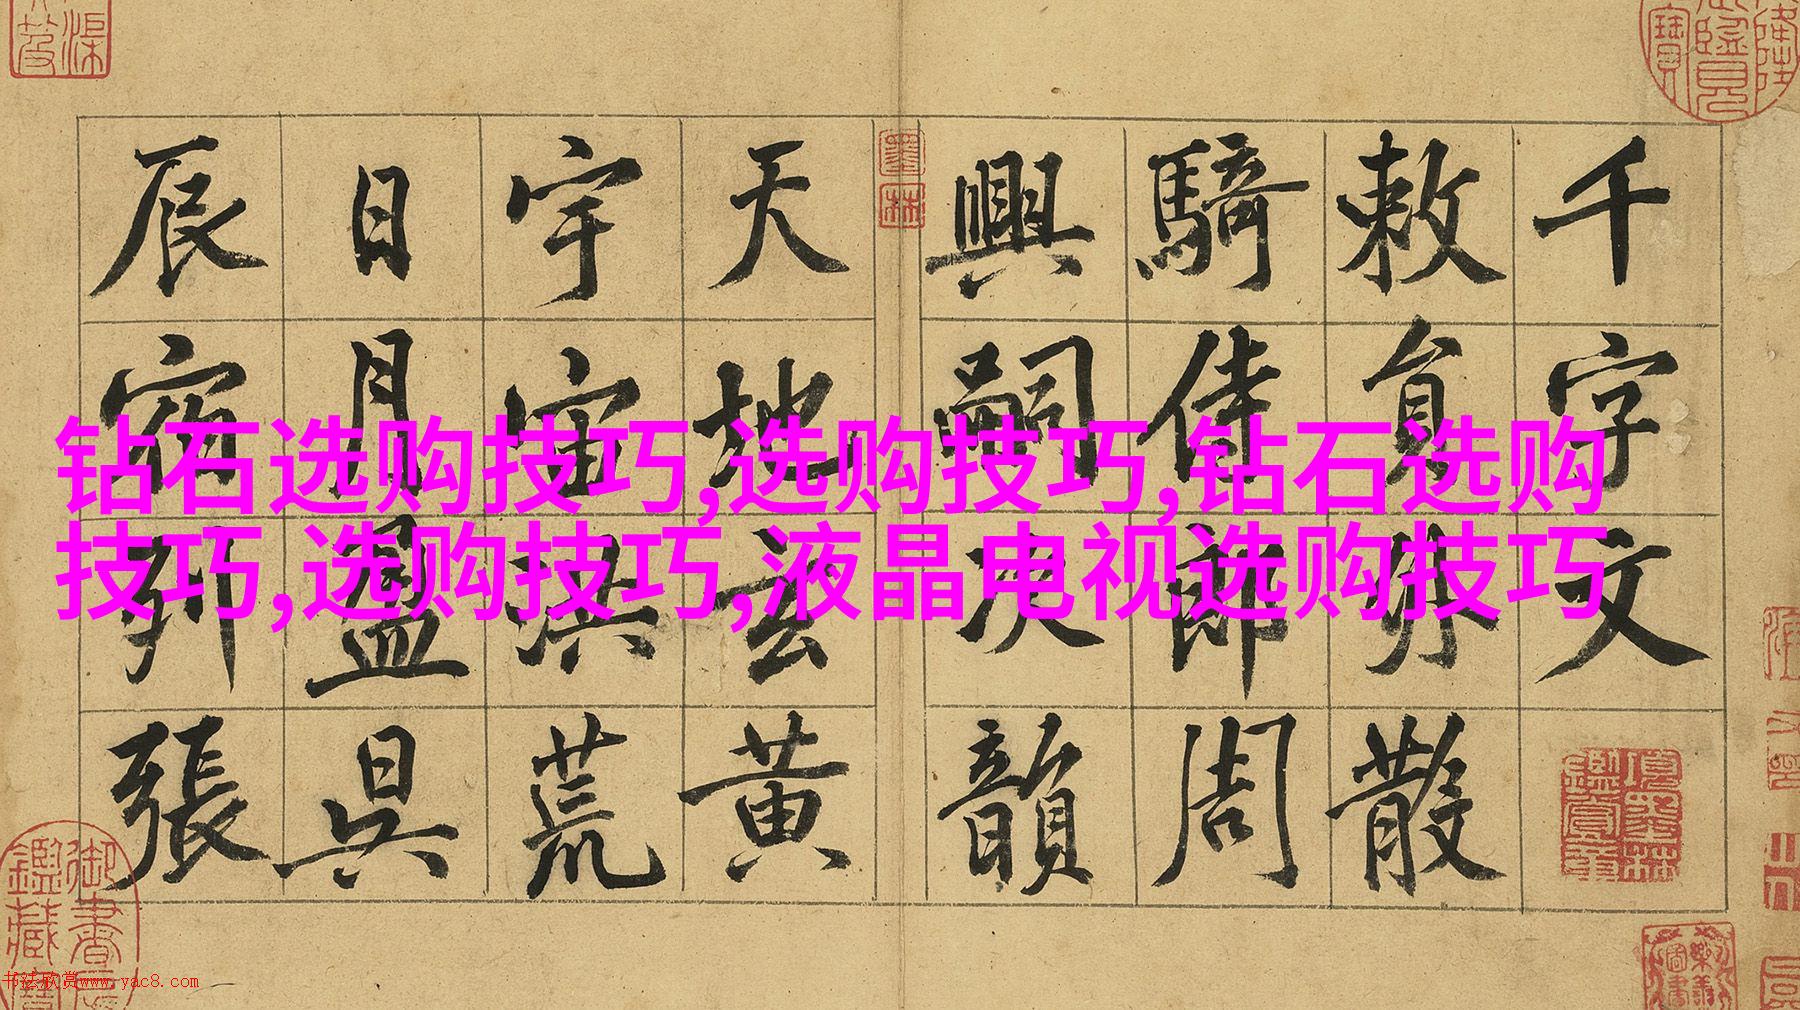 千字文
敕員外散
騎侍郎周
興嗣次韻
天地玄黄
宇宙洪荒
日月盈昃
辰宿列張
钻石选购技巧,选购技巧,钻石选购
技巧,选购技巧,液晶电视选购技巧
墨林
項墨林鑑賞章
书法欣赏www.yac8.com